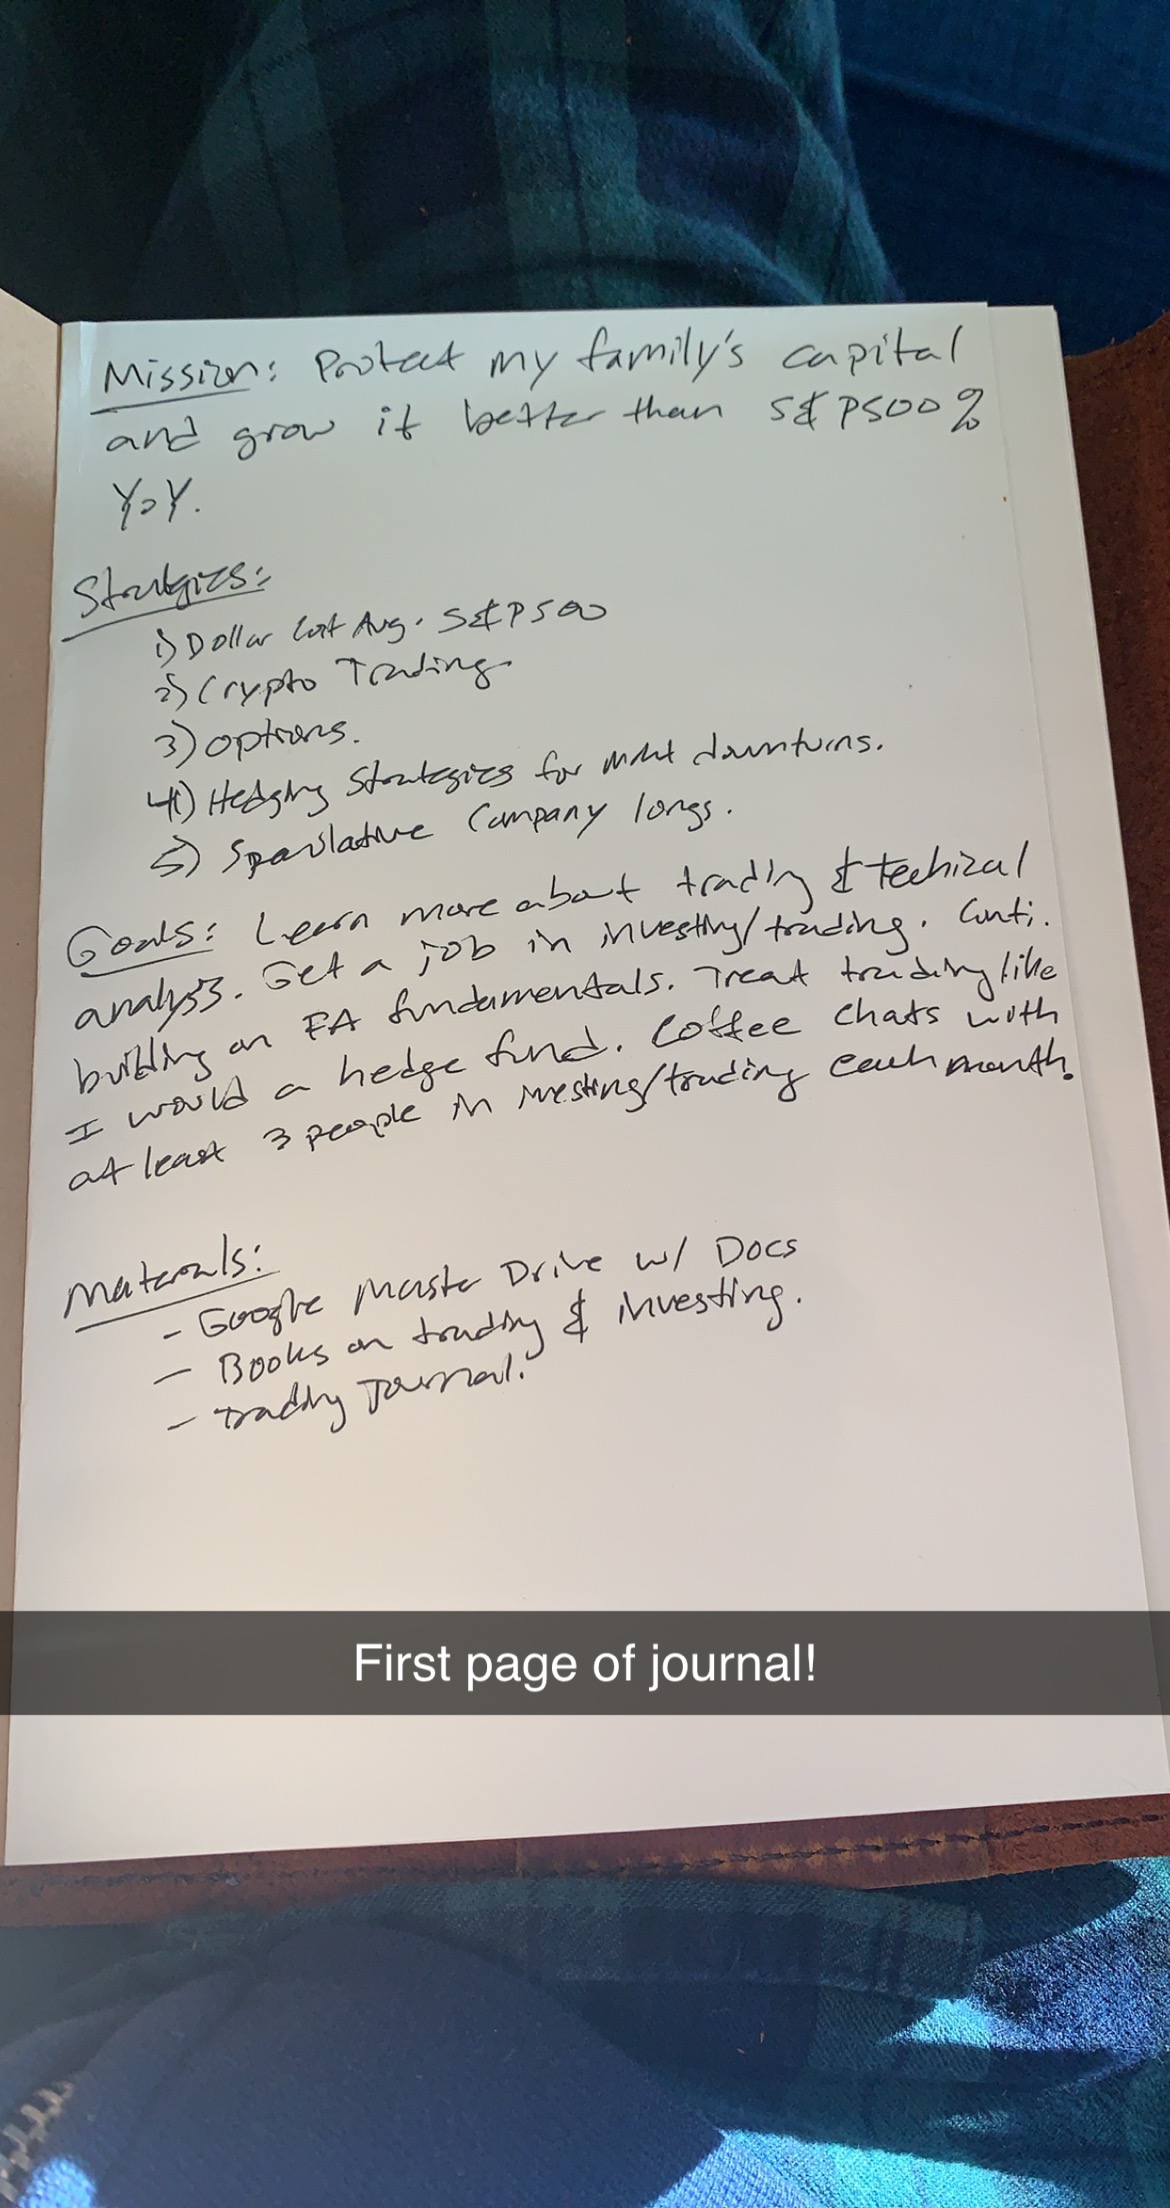 Mission: Protect my family's capital
and grow it better than S&P500 %
YoY.
Strategies:
1) Dollar Cost Avg. S&P500
2) Crypto Trading.
3) options.
4) Hedging Strategies for mrkt downturns.
5) Speculative Company longs.
Goals: Learn more about trading & techical
analysis. Get a job in investing/trading. Conti.
building on FA fundamentals. Treat trading like
I would a hedge fund. Coffee chats with
at least 3 people in investing/trading each month.
Materials:
- Google Master Drive w/ Docs
- Books on trading & investing.
- Trading Journal.
First page of journal!